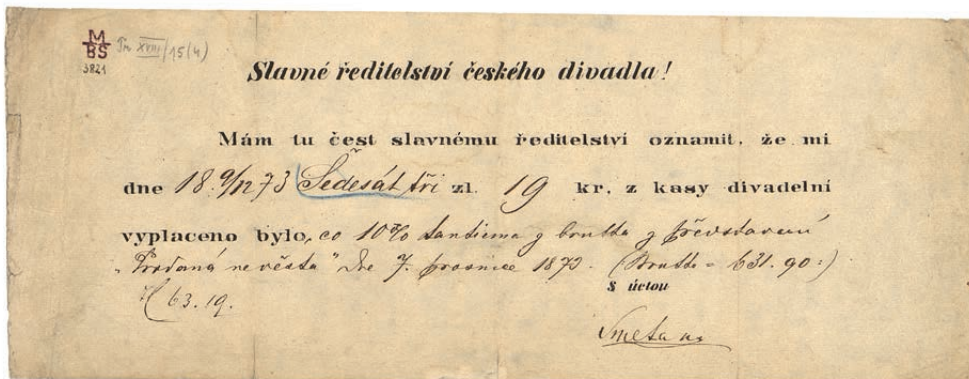 M
BS
3821
Tr. XVIII/15(4)
Slavné ředitelství českého divadla!
Mám tu čest slavnému ředitelství oznamit, že mi
dne 18 9/12 73 Šedesát tři zl. 19 kr. z kasy divadelní
vyplaceno bylo, co 10% tantiema z brutta z představení
„Prodaná nevěsta" dne 7. prosince 1873. (Brutto = 631.90:)
63.19.
S úctou
Smetana